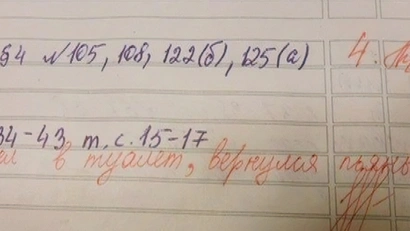 §4 №105, 108, 122(б), 125(а)
4.
34-43 т. с. 15-17
в туалет, вернулся пьяны